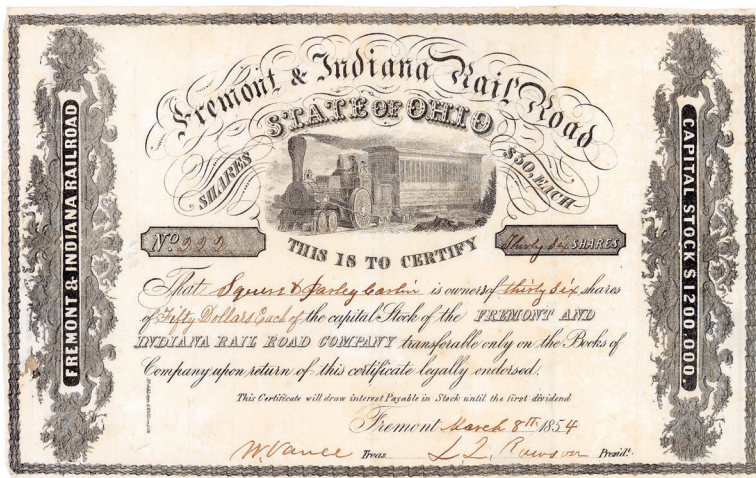 Fremont & Indiana Rail Road
STATE OF OHIO
SHARES $50, EACH
FREMONT & INDIANA RAILROAD
CAPITAL STOCK $1200,000.
No 222
THIS IS TO CERTIFY
Thirty Six SHARES
That Squire & Farley Carlin is owners of thirty six shares
of Fifty Dollars Each of the capital Stock of the FREMONT AND
INDIANA RAIL ROAD COMPANY transferable only on the Books of
Company upon return of this certificate legally endorsed.
This Certificate will draw interest Payable in Stock until the first dividend
Fremont March 8th 1854
W. Vance Treas. L. Q. Rawson Presidt.